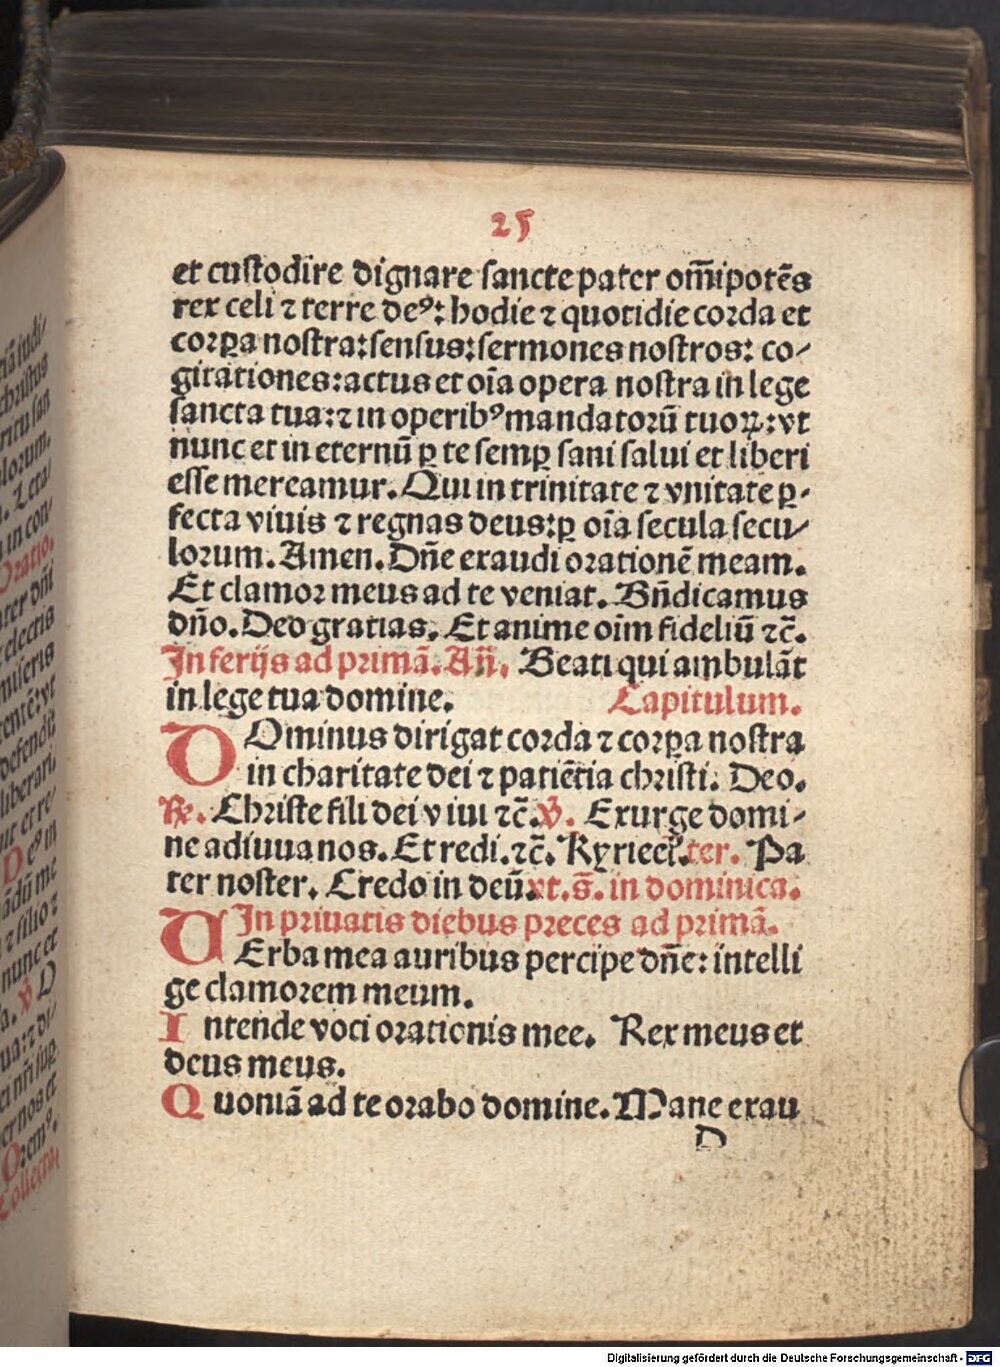 25
et custodire dignare sancte pater om̅ipote̅s
rex celi ⁊ terre deꝰ: hodie ⁊ quotidie corda et
corꝑa nostra: sensus: sermones nostros: co-
gitationes: actus et oi̅a opera nostra in lege
sancta tua: ⁊ in operibꝰ mandatoru̅ tuoꝝ: vt
nunc et in eternu̅ ꝑ te semꝑ sani salui et liberi
esse mereamur. Qui in trinitate ⁊ vnitate ꝑ-
fecta viuis ⁊ regnas deus: ꝑ oi̅a secula secu-
lorum. Amen. Dn̅e exaudi oratione̅ meam.
Et clamor meus ad te veniat. Bn̅dicamus
dn̅o. Deo gratias. Et anime oi̅m fideliu̅ ⁊c̅.
In ferijs ad prima̅. An̅. Beati qui ambula̅t
in lege tua domine. Capitulum.
DOminus dirigat corda ⁊ corꝑa nostra
in charitate dei ⁊ patie̅tia christi. Deo.
℞. Christe fili dei viui ⁊c̅. ℣. Exurge domi-
ne adiuua nos. Et redi. ⁊c̅. Kyrieel̅. ter. Pa
ter noster. Credo in deu̅. vt. s̅. in dominica.
In priuatis diebus preces ad prima̅.
UErba mea auribus percipe dn̅e: intelli
ge clamorem meum.
Intende voci orationis mee. Rex meus et
deus meus.
Quonia̅ ad te orabo domine. Mane exau
D
Digitalisierung gefördert durch die Deutsche Forschungsgemeinschaft - DFG